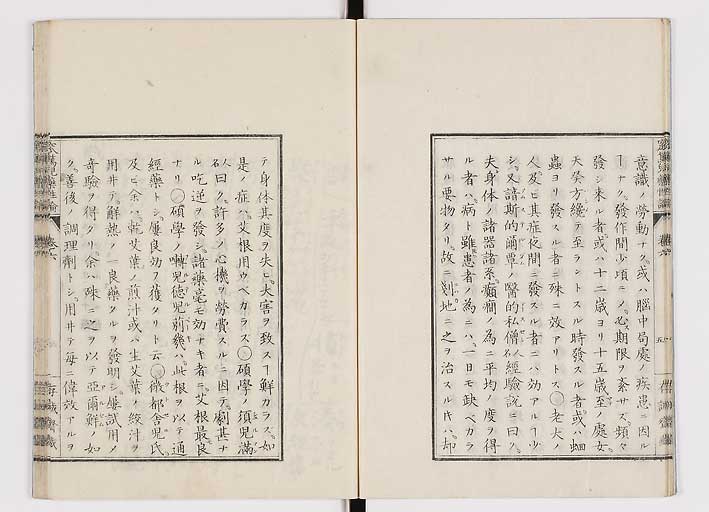 意識ノ勞動ナク或ハ腦中局處ノ疾患ニ因ル
ーナク發作間少頃ニノ必期限ヲ紊サス頻々
發シ来ル者或ハ十二歳ヨリ十五歳至ノ處女
天癸方纔ニ至ラントスル時發スル者或ハ蛔
蟲ヨリ發スル者ニ殊ニ效アリトス○老夫
人及ヒ其症夜間ニ發スル者ニハ効アルー少
シ又諳斯的爾曹ノ醫的私僧人名經驗說ニ曰ク
夫身体ノ諸器諸系癲癇ノ為ニ平均ノ度ヲ得
ル者ハ病ト雖患者ノ為ニハ一日モ缺ベカラ
サル要物タリ故ニ
地ニ之ヲ治スル𠂉ハ却
テ身体其度ヲ失ヒ大害ヲ致スー鮮カラス如
是ノ症ハ艾根用ウベカラス○碩學ノ須児満
人名曰ク許多ノ心機ヲ勞費スルニ因テ劇甚ナ
ル吃逆ヲ發シ諸藥毫モ効ナキ者ニ艾根最良
ナリ○碩學ノ囀児德児蒴幾ハ此根ヲ以テ通
經藥トシ屢良効ヲ獲タリト云○微都舍児氏
及ヒ余ハ乾艾葉ノ煎汁或ハ生艾葉ノ絞汁ヲ
用井テ解熱ノ一良藥タルヲ發明シ屢試用ノ
奇驗ヲ得タリ余ハ殊ニ之ヲ以テ亞爾鮮ノ如
ク善後ノ調理劑トシ用井テ每ニ偉效アルヲ